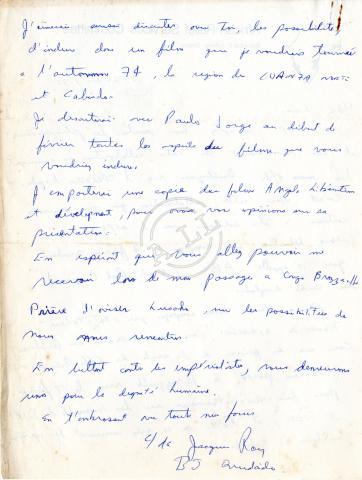 J'aimerais aussi discuter avec toi, les possibilités
d'inclure dans un film que je voudrais tourner
à l'automne 74, la region de CUANZA
et Cabinda.
Je discuterai avec Paulo Jorge au début de
février toutes les aspects du filme que vous
voudriez inclure.
J'emporterai une copie du filme Angola Libération
et dévelopment, pour avoir vos opinions sur sa
présentation.
En espérant que vous allez pouvoir me
recevoir lors de mon passage a Congo Brazzaville
Prière d'aviser Lusaka, sur les possibilités de
nous rencontrer.
En luttant contre les impérialistes, nous demeurons
unis pour la dignité humaine.
En t'embrassant avec toute nos forces
c/ de Jacques Roy